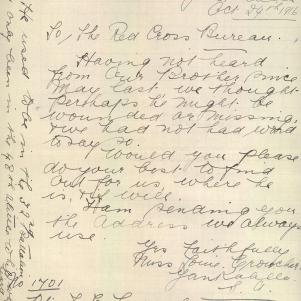 Oct 24th 1916
To, The Red Cross Bureau.
Having not heard
from Our Brother since
May last, we thought
perhaps he might be
wounded or missing,
& we had not had word
to say so.
Would you please
do your best to find
out for us, where he
is, & will.
I am sending you
the address we always
use
Yrs Faithfully
Miss Louie Croucher
S. A.
He used to be in the 32nd Battalion
only been in the 48th
1701